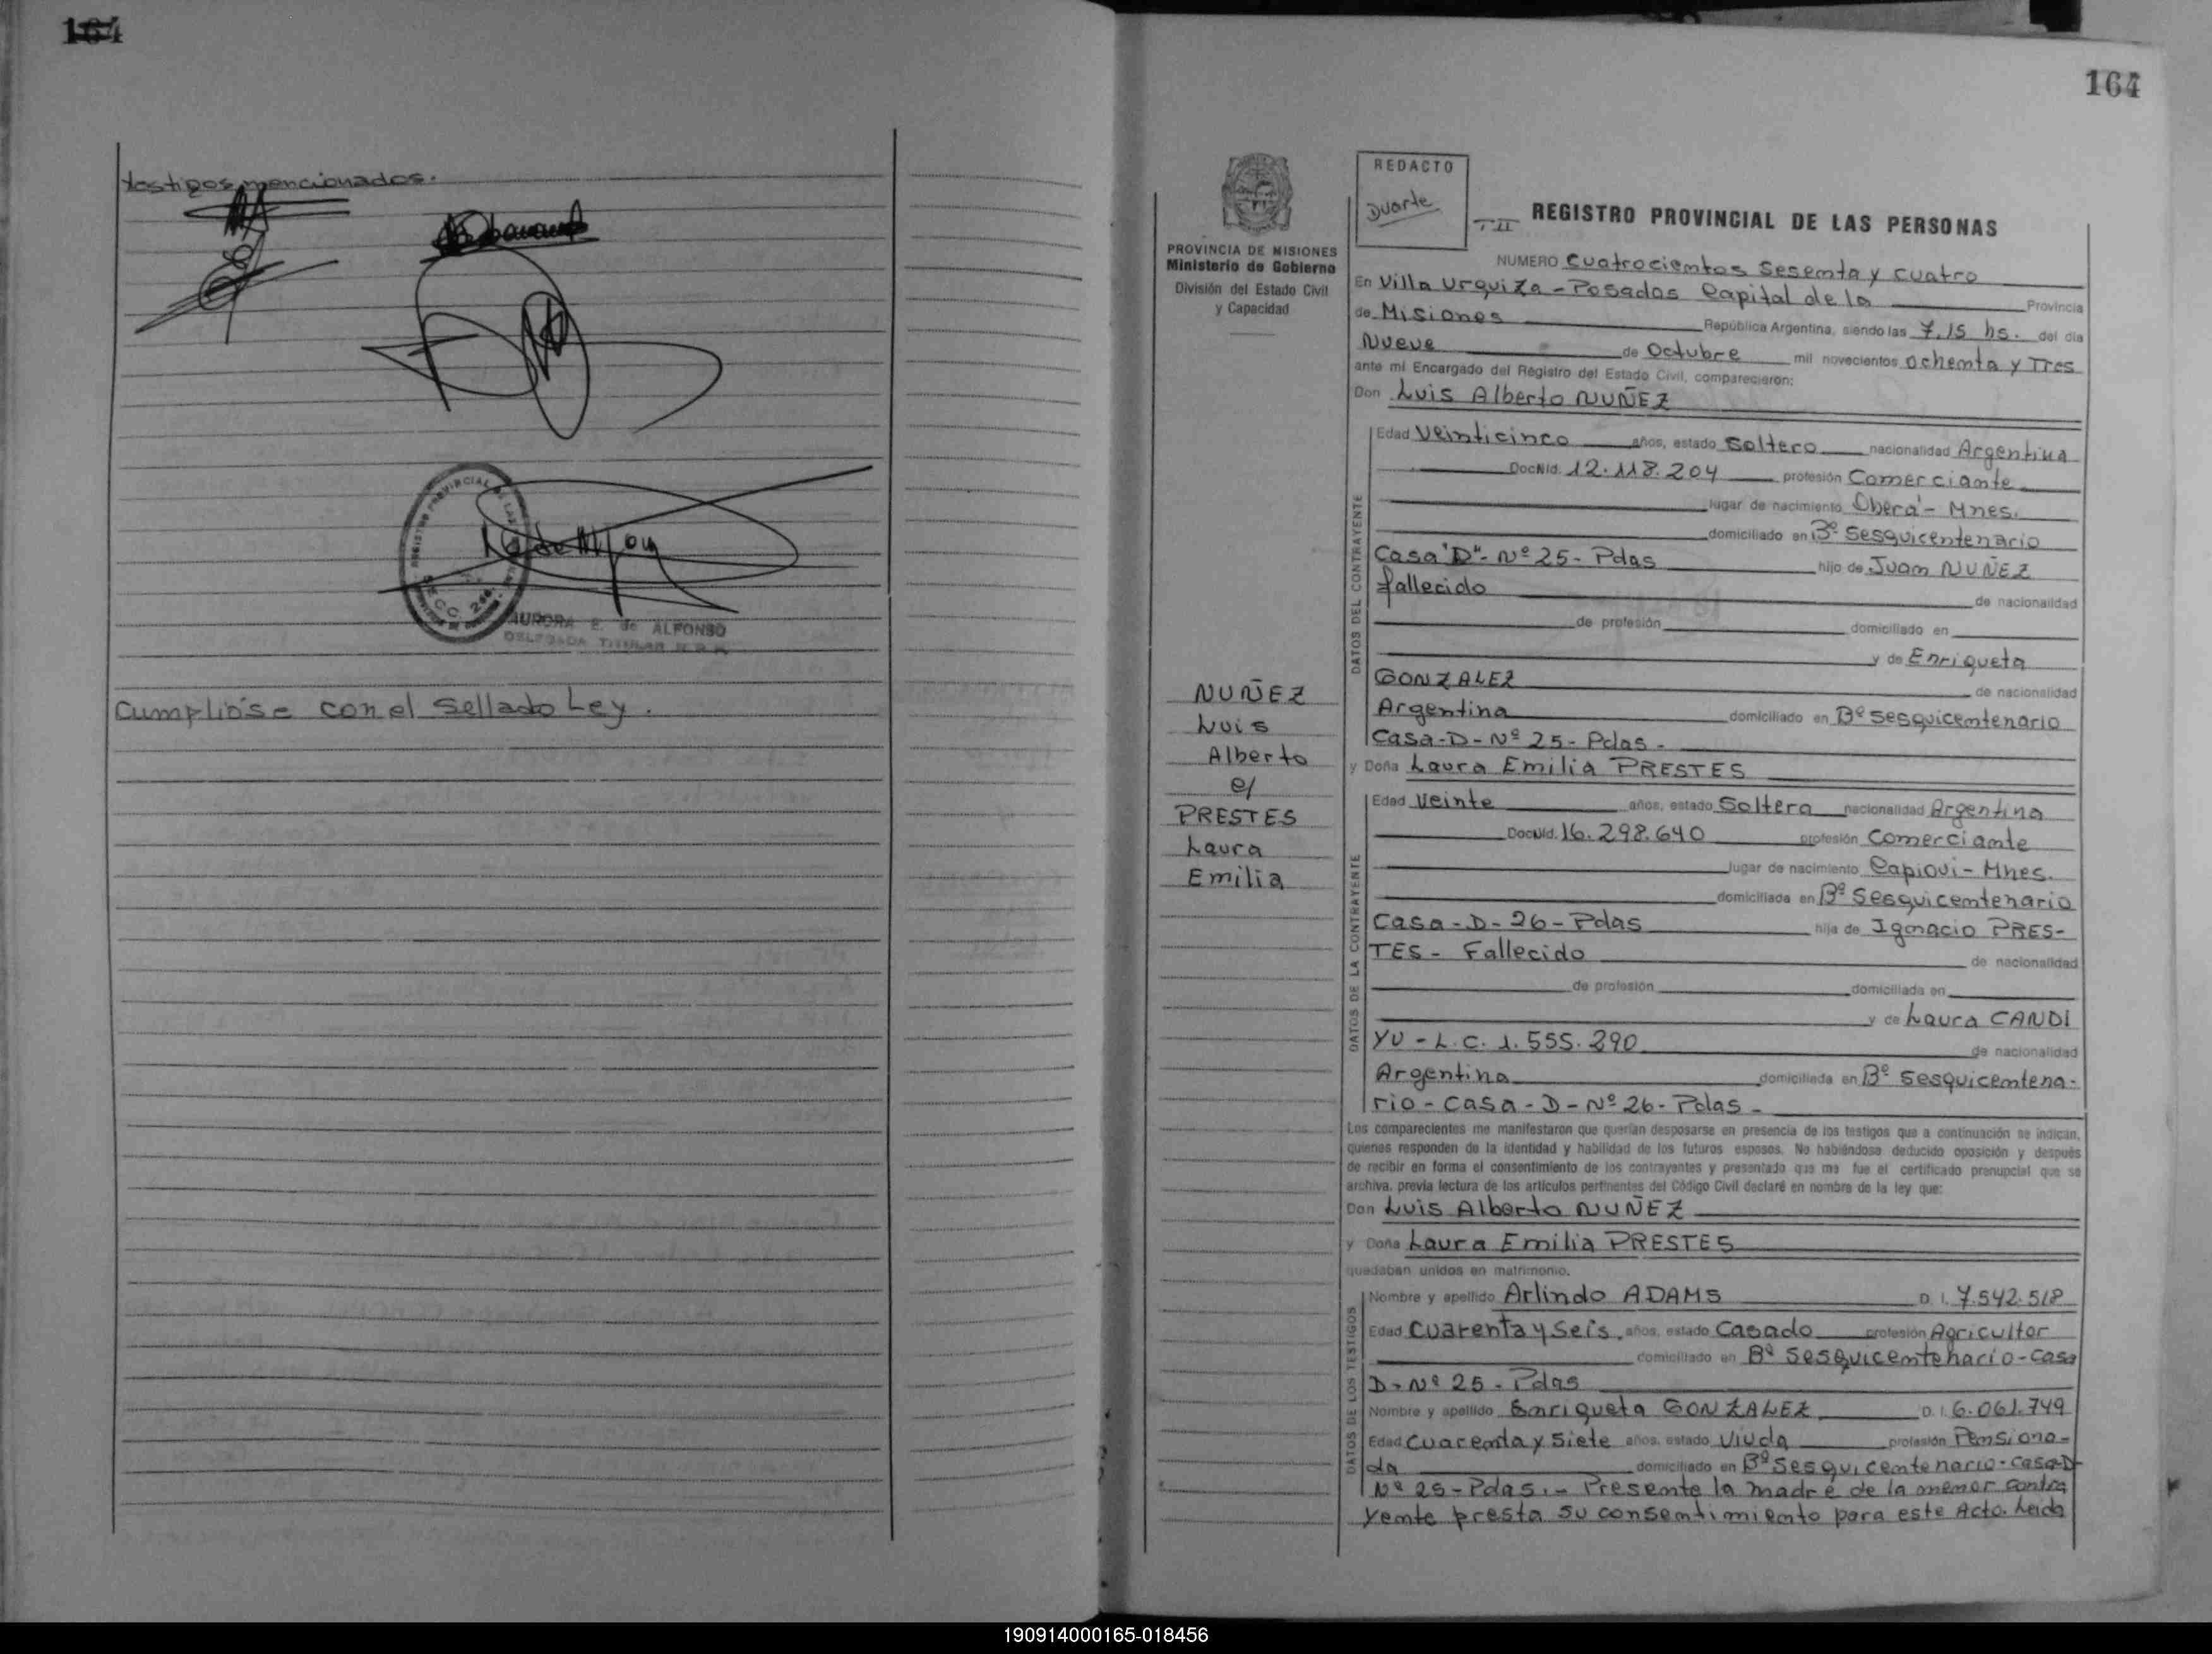 164
testigos mencionados.
REGISTRO PROVINCIAL DE LAS
AURORA E. de ALFONSO
DELEGADA TITULAR
Cumplióse con el Sellado Ley.
164
PROVINCIA DE MISIONES
Ministerio de Gobierno
División del Estado Civil
y Capacidad
NUÑEZ
Luis
Alberto
c/
PRESTES
Laura
Emilia
REDACTO
Duarte
T-II REGISTRO PROVINCIAL DE LAS PERSONAS
NUMERO Cuatrocientos Sesenta y cuatro
En Villa Urquiza - Posadas Capital de la Provincia
de Misiones República Argentina, siendo las 7.15 hs. del día
Nueve de Octubre mil novecientos ochenta y Tres
ante mí Encargado del Registro del Estado Civil, comparecieron:
Don Luis Alberto NUÑEZ
DATOS DEL CONTRAYENTE
Edad Veinticinco años, estado Soltero nacionalidad Argentina
Doc. Nid. 12.118.204 profesión Comerciante
lugar de nacimiento Oberá - Mnes.
domiciliado en Bº Sesquicentenario
Casa "D" - Nº 25 - Pdas hijo de Juan NUÑEZ
fallecido de nacionalidad
de profesión domiciliado en
y de Enriqueta
GONZALEZ de nacionalidad
Argentina domiciliado en Bº Sesquicentenario
Casa - D - Nº 25 - Pdas -
y Doña Laura Emilia PRESTES
DATOS DE LA CONTRAYENTE
Edad Veinte años, estado Soltera nacionalidad Argentina
Doc. Nid. 16.298.640 profesión Comerciante
lugar de nacimiento Capiovi - Mnes.
domiciliada en Bº Sesquicentenario
Casa - D - 26 - Pdas hija de Ignacio PRES-
TES - Fallecido de nacionalidad
de profesión domiciliada en
y de Laura CANDI
YU - L.C. 1.555.290 de nacionalidad
Argentina domiciliada en Bº Sesquicentena-
rio - Casa - D - Nº 26 - Pdas -
Los comparecientes me manifestaron que querían desposarse en presencia de los testigos que a continuación se indican,
quienes responden de la identidad y habilidad de los futuros esposos. No habiéndose deducido oposición y después
de recibir en forma el consentimiento de los contrayentes y presentado que me fue el certificado prenupcial que se
archiva, previa lectura de los artículos pertinentes del Código Civil declaré en nombre de la ley que:
Don Luis Alberto NUÑEZ
y Doña Laura Emilia PRESTES
quedaban unidos en matrimonio.
DATOS DE LOS TESTIGOS
Nombre y apellido Arlindo ADAMS D. I. 7.542.518
Edad Cuarenta y Seis, años, estado Casado profesión Agricultor
domiciliado en Bº Sesquicentenario - Casa
D - Nº 25 - Pdas
Nombre y apellido Enriqueta GONZALEZ D. I. 6.061.749
Edad Cuarenta y Siete años, estado Viuda profesión Pensiona-
da domiciliado en Bº Sesquicentenario - Casa - D -
Nº 25 - Pdas. - Presente la madre de la menor contra
yente presta su consentimiento para este Acto. Leida
190914000165-018456